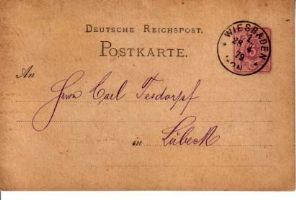 DEUTSCHE REICHSPOST.
POSTKARTE.
WIESBADEN
79
An
Herrn Carl Tesdorpf
in Lübeck